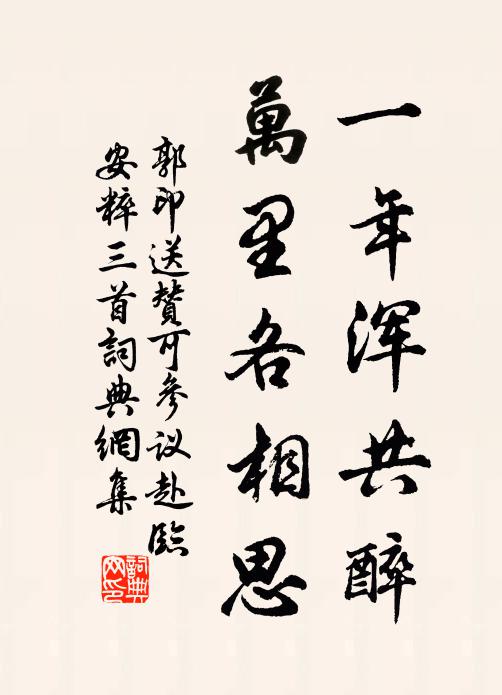 一年浑共醉
萬里各相思
郭印送賛可參议赴臨
安粹三首詞典網集
詞典网印